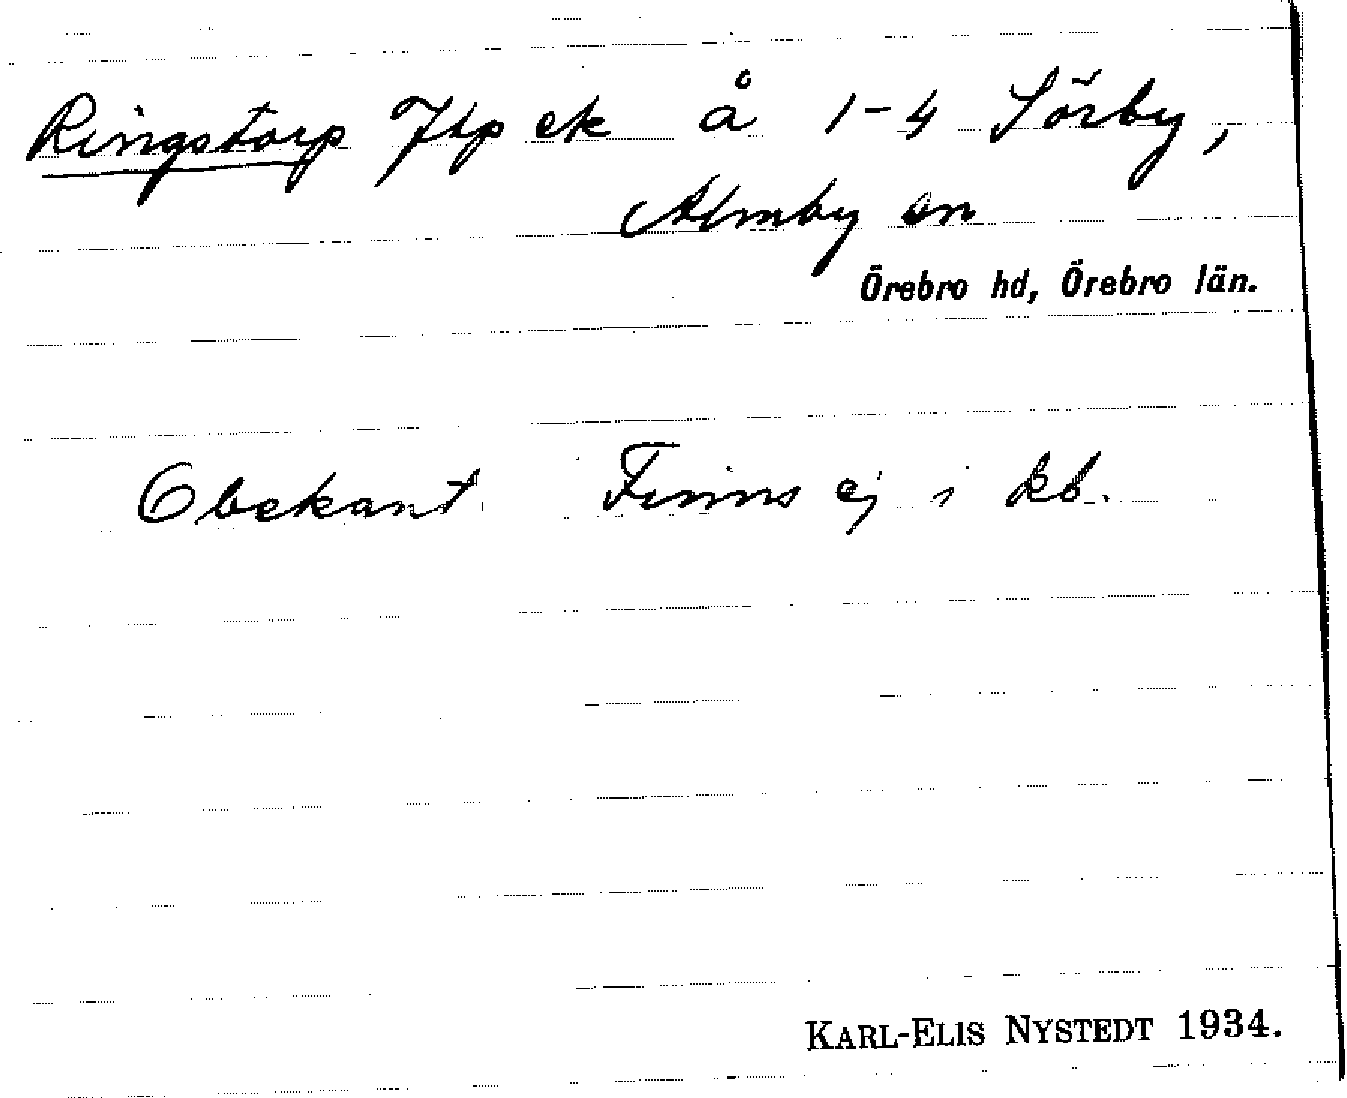 Ringstorp Jlp ek å 1-4 Sörby,
Almby sn
Örebro hd, Örebro län.
Obekant Finns ej i kb.
KARL-ELIS NYSTEDT 1934.